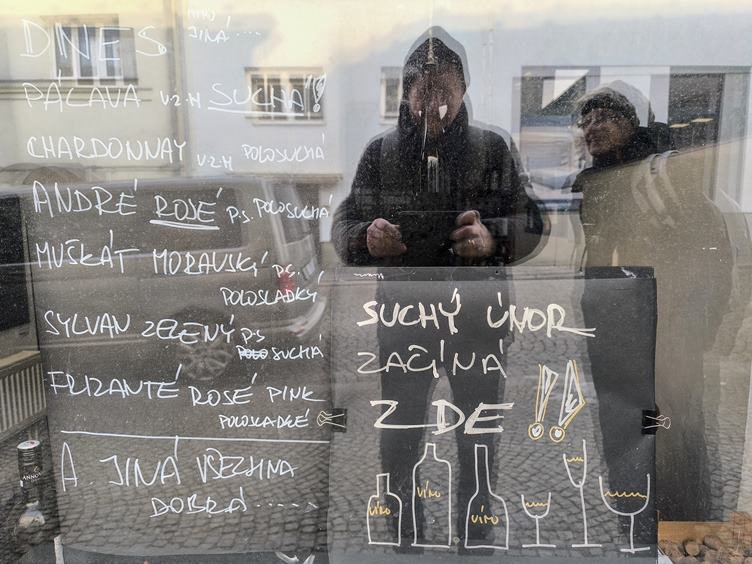 DNES
JINÁ ....
PÁLAVA V.Z.H SUCHÁ!!
CHARDONNAY V.Z.H POLOSUCHÁ
ANDRÉ ROSÉ P.S. POLOSUCHÁ
MUŠKÁT MORAVSKÝ P.S.
POLOSLADKÝ
SYLVAN ZELENÝ P.S
SUCHÁ
FRIZANTÉ ROSÉ PINK
POLOSLADKÉ
A. JINÁ VŠECHNA
DOBRÁ ....
SUCHÝ ÚNOR
ZAČÍNÁ
ZDE !!
VÍNO
VÍNO
VÍNO